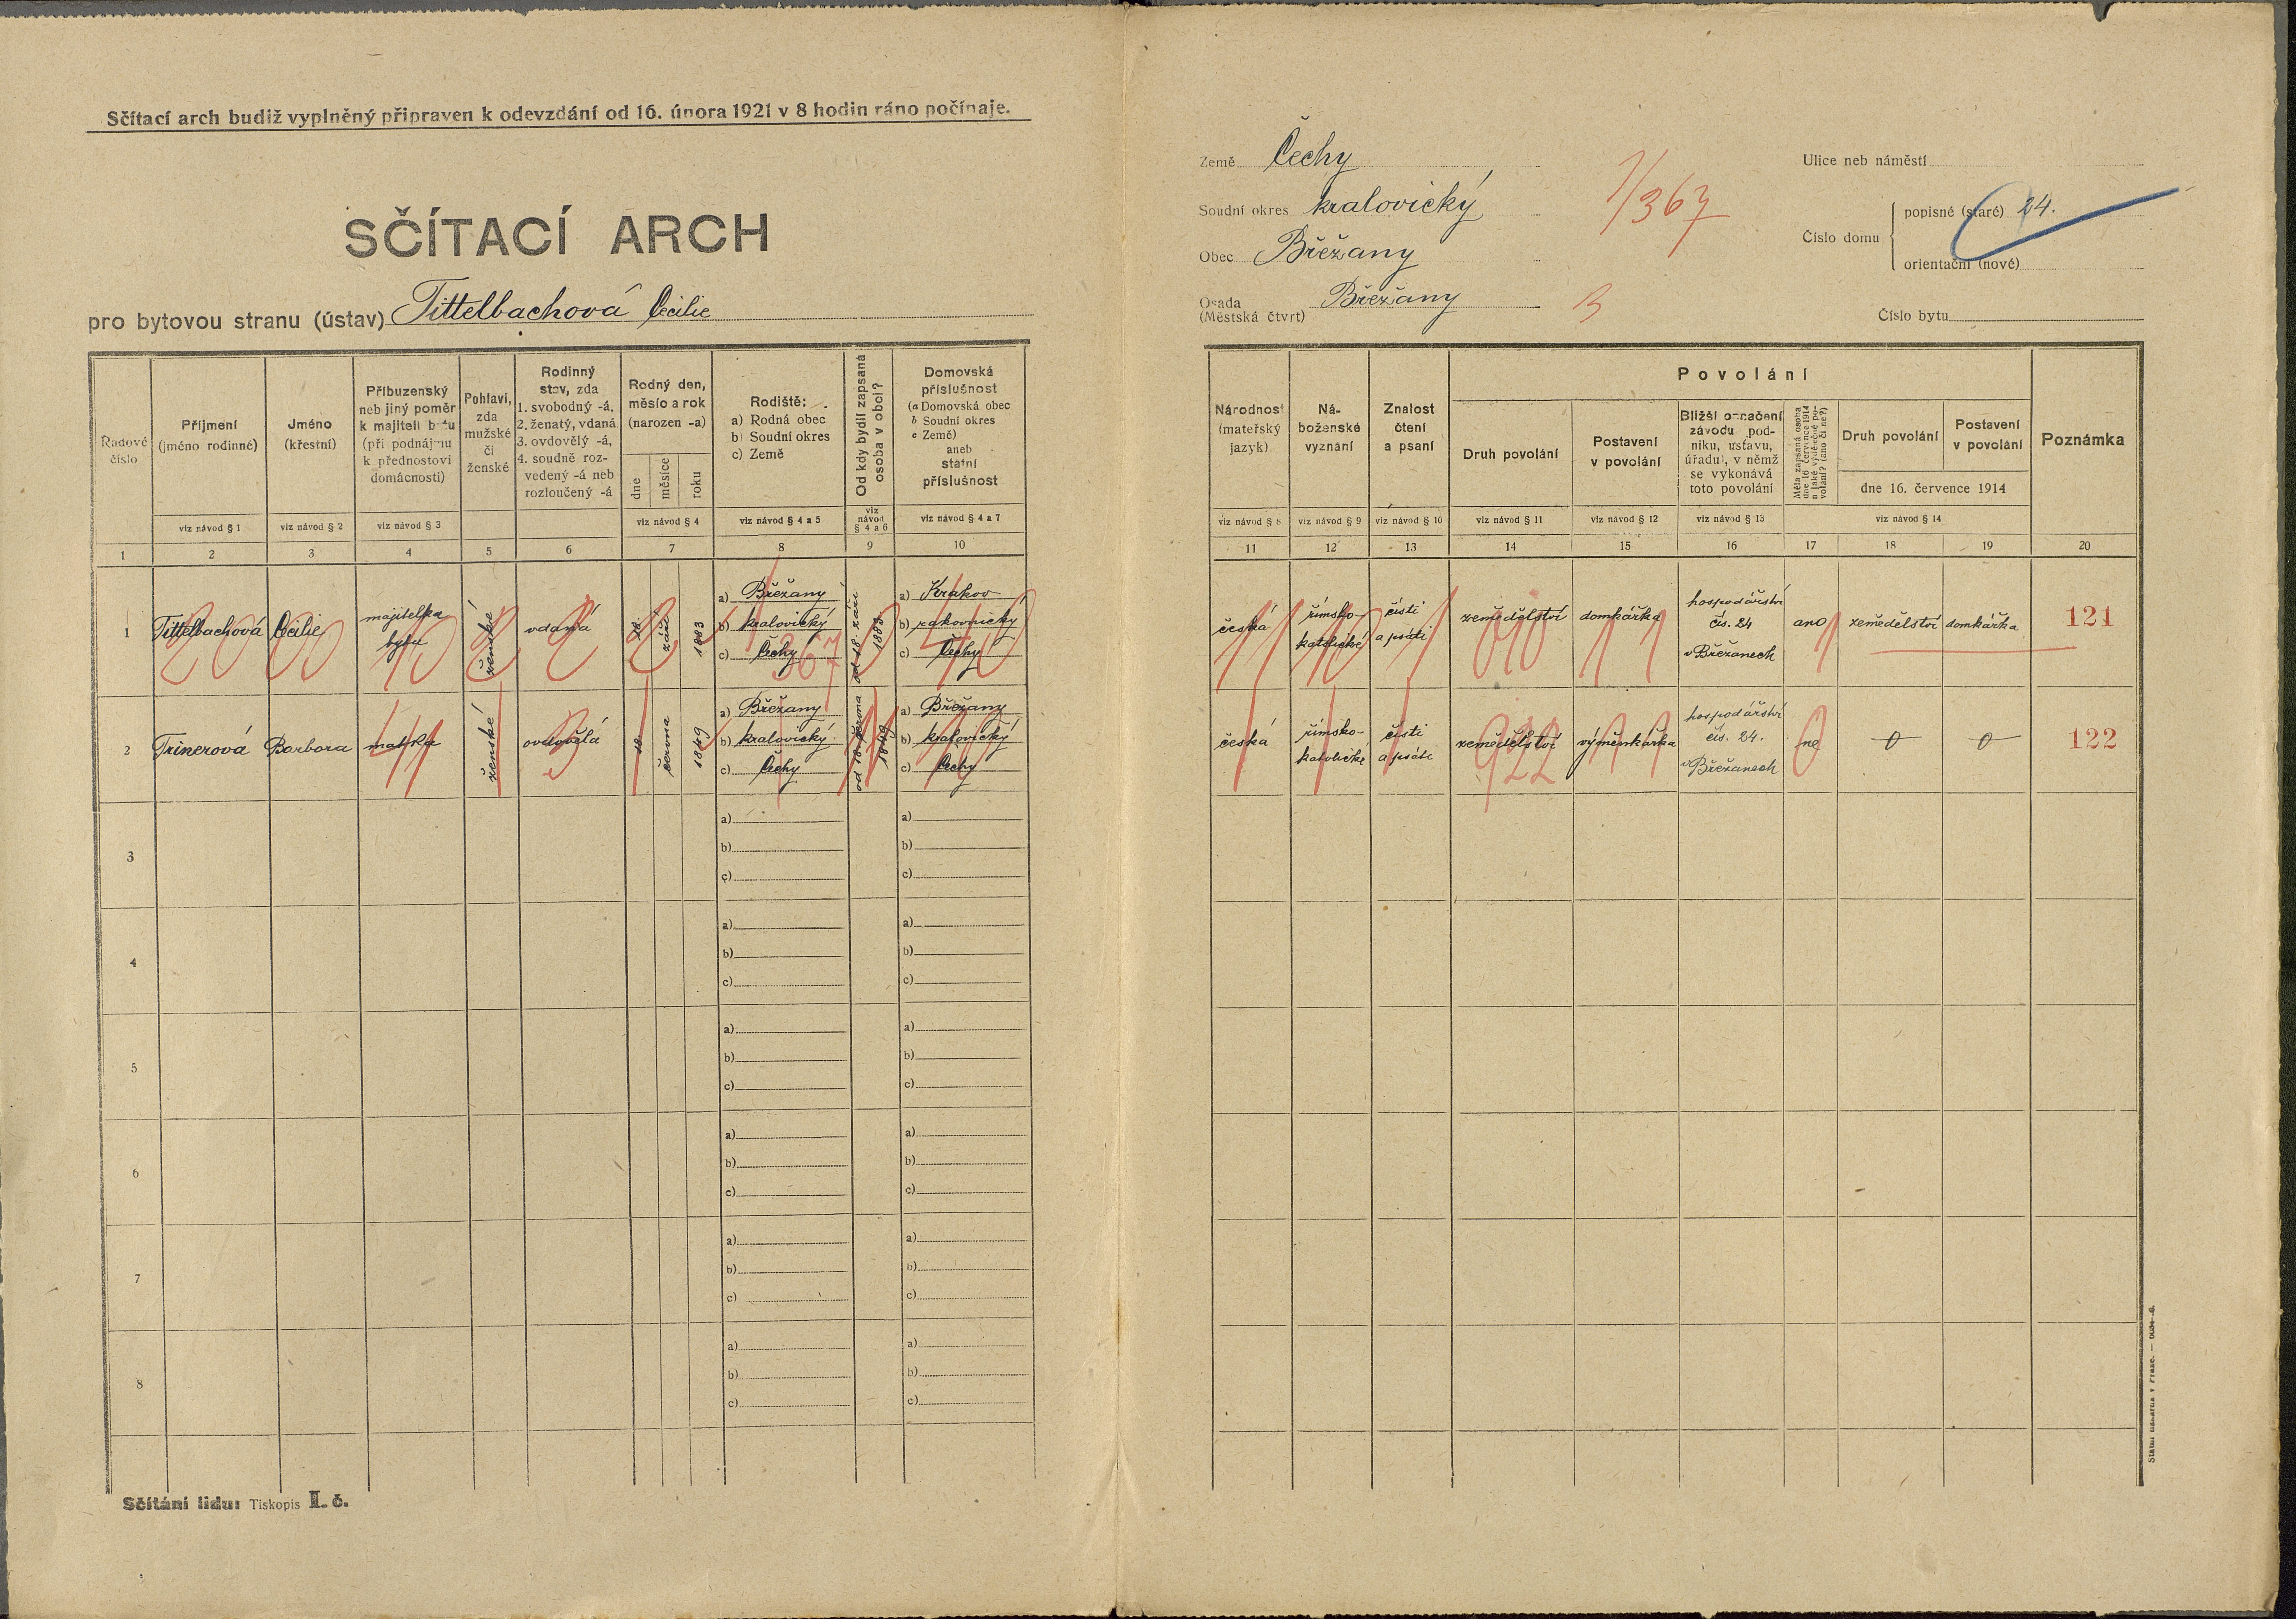 Sčítací arch budiž vyplněný připraven k odevzdání od 16. února 1921 v 8 hodin ráno počínaje.
SČÍTACÍ ARCH
pro bytovou stranu (ústav) Tittelbachová Cecilie
Řadové číslo
Příjmení (jméno rodinné)
Jméno (křestní)
Příbuzenský neb jiný poměr k majiteli bytu (při podnájmu k přednostovi domácnosti)
Pohlaví, zda mužské či ženské
Rodinný stav, zda 1. svobodný -á, 2. ženatý, vdaná 3. ovdovělý -á, 4. soudně rozvedený -á neb rozloučený -á
Rodný den, měsíc a rok (narozen -a)
dne
měsíce
roku
Rodiště:
a) Rodná obec
b) Soudní okres
c) Země
Od kdy bydlí zapsaná osoba v obci?
Domovská příslušnost
(a Domovská obec
b Soudní okres
c Země)
aneb
státní
příslušnost
viz návod § 1
viz návod § 2
viz návod § 3
viz návod § 4
viz návod § 4 a 5
viz návod § 4 a 6
viz návod § 4 a 7
1 2 3 4 5 6 7 8 9 10
1 Tittelbachová Cecilie majitelka bytu ženské vdaná 18. září 1883
a) Břežany
b) kralovický
c) Čechy
od 18. září 1883
a) Krakov
b) rakovnický
c) Čechy
2 Trinerová Barbora matka ženské ovdovělá 18. června 1849
a) Břežany
b) kralovický
c) Čechy
od 18. června 1849
a) Břežany
b) kralovický
c) Čechy
3
a) a)
b) b)
c) c)
4
a) a)
b) b)
c) c)
5
a) a)
b) b)
c) c)
6
a) a)
b) b)
c) c)
7
a) a)
b) b)
c) c)
8
a) a)
b) b)
c) c)
Sčítání lidu: Tiskopis I. č.
Země Čechy
Soudní okres kralovický
Obec Břežany
Osada (Městská čtvrt) Břežany
1/367
3
Ulice neb náměstí
Číslo domu
popisné (staré) 24.
orientační (nové)
Číslo bytu
Národnost (mateřský jazyk)
Náboženské vyznání
Znalost čtení a psaní
Povolání
Druh povolání
Postavení v povolání
Bližší označení závodu, podniku, ústavu, úřadu), v němž se vykonává toto povolání
Měla zapsaná osoba dne 16 července 1914 nějaké výdělečné povolání? (ano či ne?)
Druh povolání
Postavení v povolání
dne 16. července 1914
Poznámka
viz návod § 8
viz návod § 9
viz návod § 10
viz návod § 11
viz návod § 12
viz návod § 13
viz návod § 14
11 12 13 14 15 16 17 18 19 20
česká římsko-katolické čísti a psáti zemědělství domkářka hospodářství čís. 24 v Břežanech ano zemědělství domkářka 121
česká římsko-katolické čísti a psáti zemědělství výměnkářka hospodářství čís. 24. v Břežanech ne 0 0 122